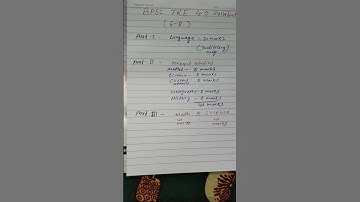 BPSC TRE 4.0 Syllabus
(6-8)
Part-I Language - 30 marks
(Qualifying only)
Part-II - General Studies
Maths - 8 marks
Science - 8 marks
Current affairs 8 marks
Geography - 8 marks
History - 8 marks
40 marks
Part III - Math & Science
marks marks